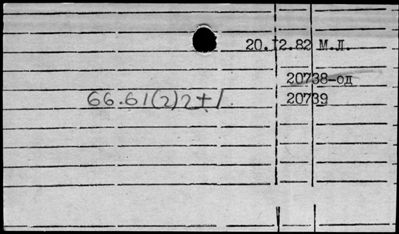 20.12.82 М.Л.
20738-од
66.61(2)2+1. 20739